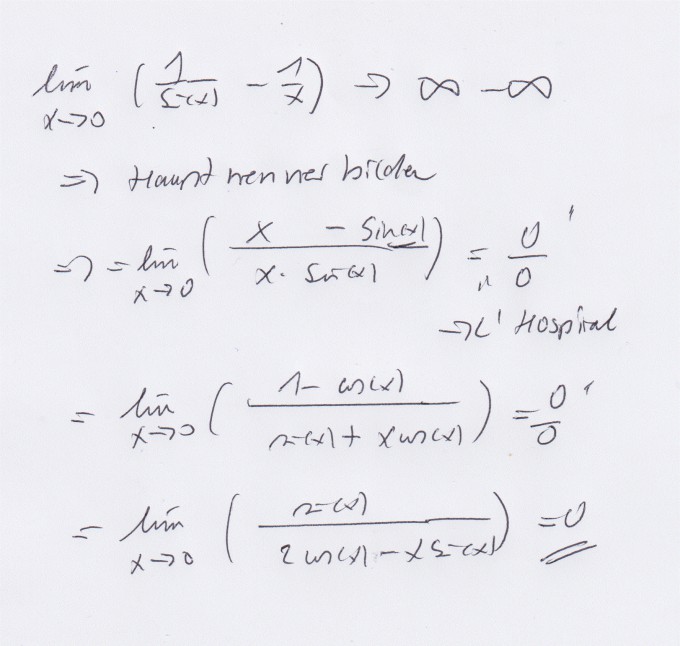 lim x→0 (1/sin(x) - 1/x) → ∞ - ∞
⇒ Hauptnenner bilden
⇒ = lim x→0 (x - sin(x) / x · sin(x)) = "0/0"
→ L' Hospital
= lim x→0 (1 - cos(x) / sin(x) + x cos(x)) = 0/0 '
= lim x→0 (sin(x) / 2 cos(x) - x sin(x)) = 0